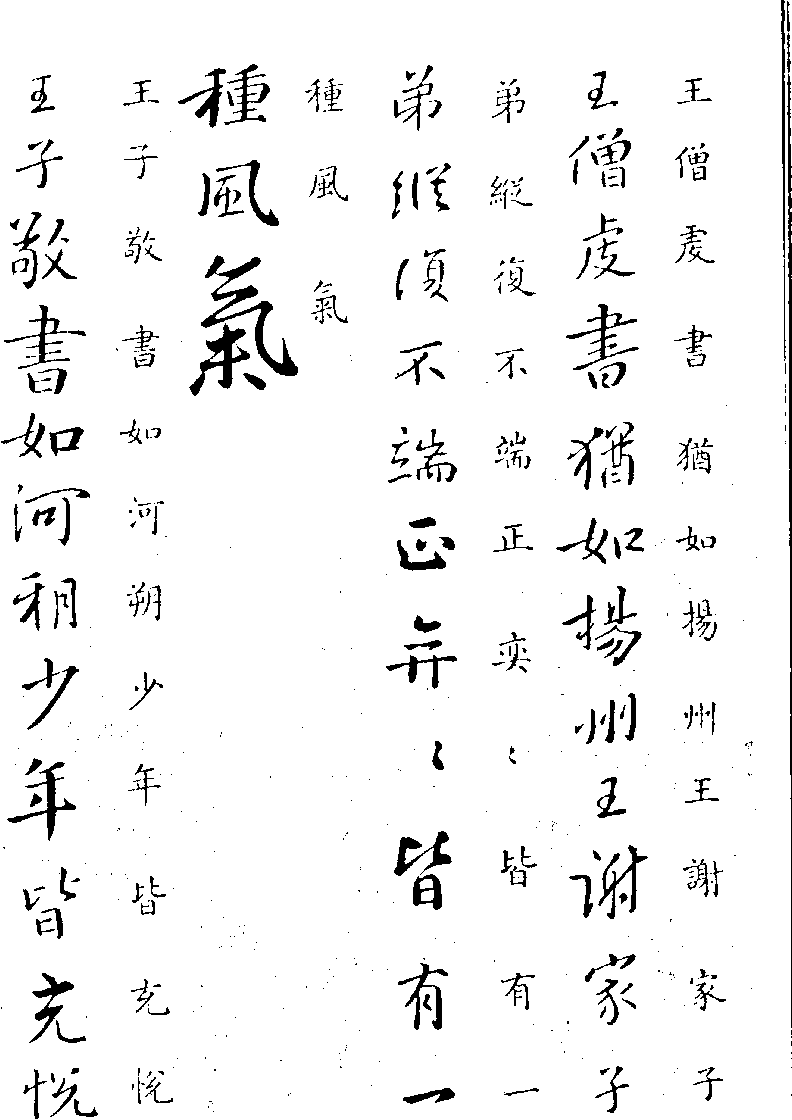 王僧虔書猶如揚州王謝家子
王僧虔書猶如揚州王謝家子
弟縱復不端正奕〻皆有一
弟縱復不端正奕〻皆有一
種風氣
種風氣
王子敬書如河朔少年皆充悅
王子敬書如河朔少年皆充悅